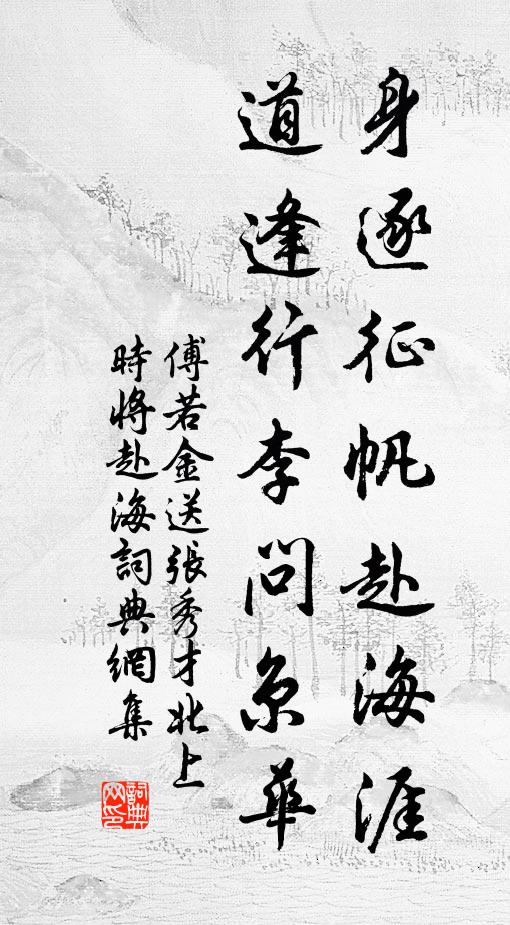 身逐征帆赴海涯
道逢行李問京華
傅若金送張秀才北上
時將赴海詞典網集
詞典網印